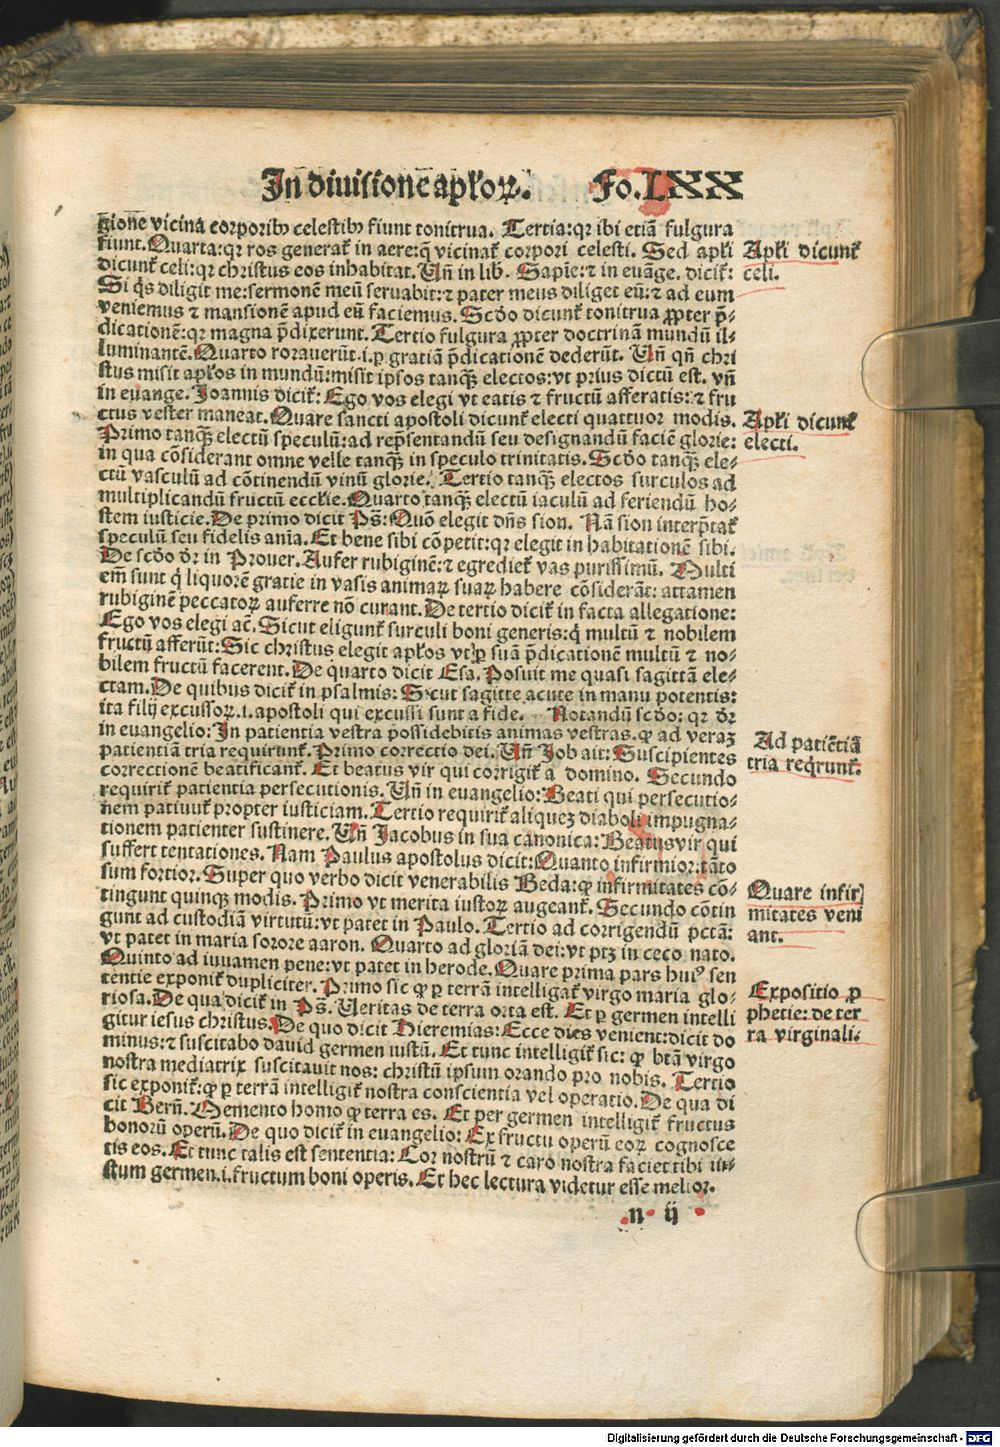 In diuisione apłoꝝ. Fo.LXX
gione vicina corporibꝰ celestibꝰ fiunt tonitrua. Tertia:qꝛ ibi etiā fulgura
fiunt. Quarta:qꝛ ros generat̄ in aere:q̄ vicinat̄ corpori celesti. Sed apłi
dicunt̄ celi:qꝛ christus eos inhabitat. Uñ in lib. Sapie:⁊ in euāge. dicit̄:
Si q̇s diligit me:sermonē meū seruabit:⁊ pater meus diliget eū:⁊ ad eum
veniemus ⁊ mansionē apud eū faciemus. Scdo dicunt̄ tonitrua ꝓpter p̄-
dicationē:qꝛ magna p̄dixerunt. Tertio fulgura ꝓpter doctrinā mundū il-
luminantē. Quarto rorauerūt.i.ꝑ gratiā p̄dicationē dederūt. Uñ qñ chri
stus misit apłos in mundū:misit ipsos tanqꝫ electos:vt prius dictū est. vñ
in euange. Joannis dicit̄: Ego vos elegi vt eatis ⁊ fructū afferatis:⁊ fru
ctus vester maneat. Quare sancti apostoli dicunt̄ electi quattuor modis.
Primo tanqꝫ electū speculū:ad rep̄sentandū seu designandū faciē glorie:
in qua cōsiderant omne velle tanqꝫ in speculo trinitatis. Scdo tanqꝫ ele-
ctū vasculū ad cōtinendū vinū glorie. Tertio tanqꝫ electos surculos ad
multiplicandū fructū eccłie. Quarto tanqꝫ electū iaculū ad feriendū ho-
stem iusticie. De primo dicit Pš: Quō elegit dñs sion. Nā sion interp̄tat̄
speculū seu fidelis anīa. Et bene sibi cōpetit:qꝛ elegit in habitationē sibi.
De scdo dr̄ in Prouer. Aufer rubiginē:⁊ egrediet̄ vas purissimū. Multi
em̄ sunt q̇ liquorē gratie in vasis animaꝝ suaꝝ habere cōsiderāt: attamen
rubiginē peccatoꝝ auferre nō curant. De tertio dicit̄ in facta allegatione:
Ego vos elegi ac̄. Sicut eligunt̄ surculi boni generis:q̇ multū ⁊ nobilem
fructū afferūt: Sic christus elegit apłos vt ꝑ suā p̄dicationē multū ⁊ no-
bilem fructū facerent. De quarto dicit Esa. Posuit me quasi sagittā ele-
ctam. De quibus dicit̄ in psalmis: Sicut sagitte acute in manu potentis:
ita filij excussoꝝ.i.apostoli qui excussi sunt a fide. Notandū scdo: qꝛ dr̄
in euangelio: In patientia vestra possidebitis animas vestras. ꝙ ad veraꝫ
patientiā tria requirunt̄. Primo correctio dei. Uñ Job ait: Suscipientes
correctionē beatificant̄. Et beatus vir qui corrigit̄ a domino. Secundo
requirit̄ patientia persecutionis. Uñ in euangelio: Beati qui persecutio-
nem patiunt̄ propter iusticiam. Tertio requirit̄ aliqueꝫ diaboli impugna-
tionem patienter sustinere. Uñ Jacobus in sua canonica: Beatus vir qui
suffert tentationes. Nam Paulus apostolus dicit: Quanto infirmior:tāto
sum fortior. Super quo verbo dicit venerabilis Beda:ꝙ infirmitates cō-
tingunt quinqꝫ modis. Primo vt merita iustoꝝ augeant̄. Secundo cōtin
gunt ad custodiā virtutū:vt patet in Paulo. Tertio ad corrigendū pctā:
vt patet in maria sorore aaron. Quarto ad gloriā dei:vt ptꝫ in ceco nato.
Quinto ad iuuamen pene:vt patet in herode. Quare prima pars huiꝰ sen
tentie exponit̄ dupliciter. Primo sic ꝙ ꝑ terrā intelligat̄ virgo maria glo-
riosa. De qua dicit̄ in Pš. Ueritas de terra orta est. Et ꝑ germen intelli
gitur iesus christus. De quo dicit Hieremias: Ecce dies venient:dicit do
minus:⁊ suscitabo dauid germen iustū. Et tunc intelligit̄ sic: ꝙ btā virgo
nostra mediatrix suscitauit nos: christū ipsum orando pro nobis. Tertio
sic exponit̄:ꝙ ꝑ terrā intelligit̄ nostra conscientia vel operatio. De qua di
cit Berñ. Memento homo ꝙ terra es. Et per germen intelligit̄ fructus
bonorū operū. De quo dicit̄ in euangelio: Ex fructu operū eoꝝ cognosce
tis eos. Et tunc talis est sententia: Cor nostrū ⁊ caro nostra faciet tibi iu-
stum germen.i.fructum boni operis. Et hec lectura videtur esse melior.
n ij
Apłi dicunt̄
celi.
Apłi dicunt̄
electi.
Ad patiētiā
tria reqrunt̄.
Quare infir
mitates veni
ant.
Expositio ꝓ
phetie: de ter
ra virginali.
Digitalisierung gefördert durch die Deutsche Forschungsgemeinschaft - DFG